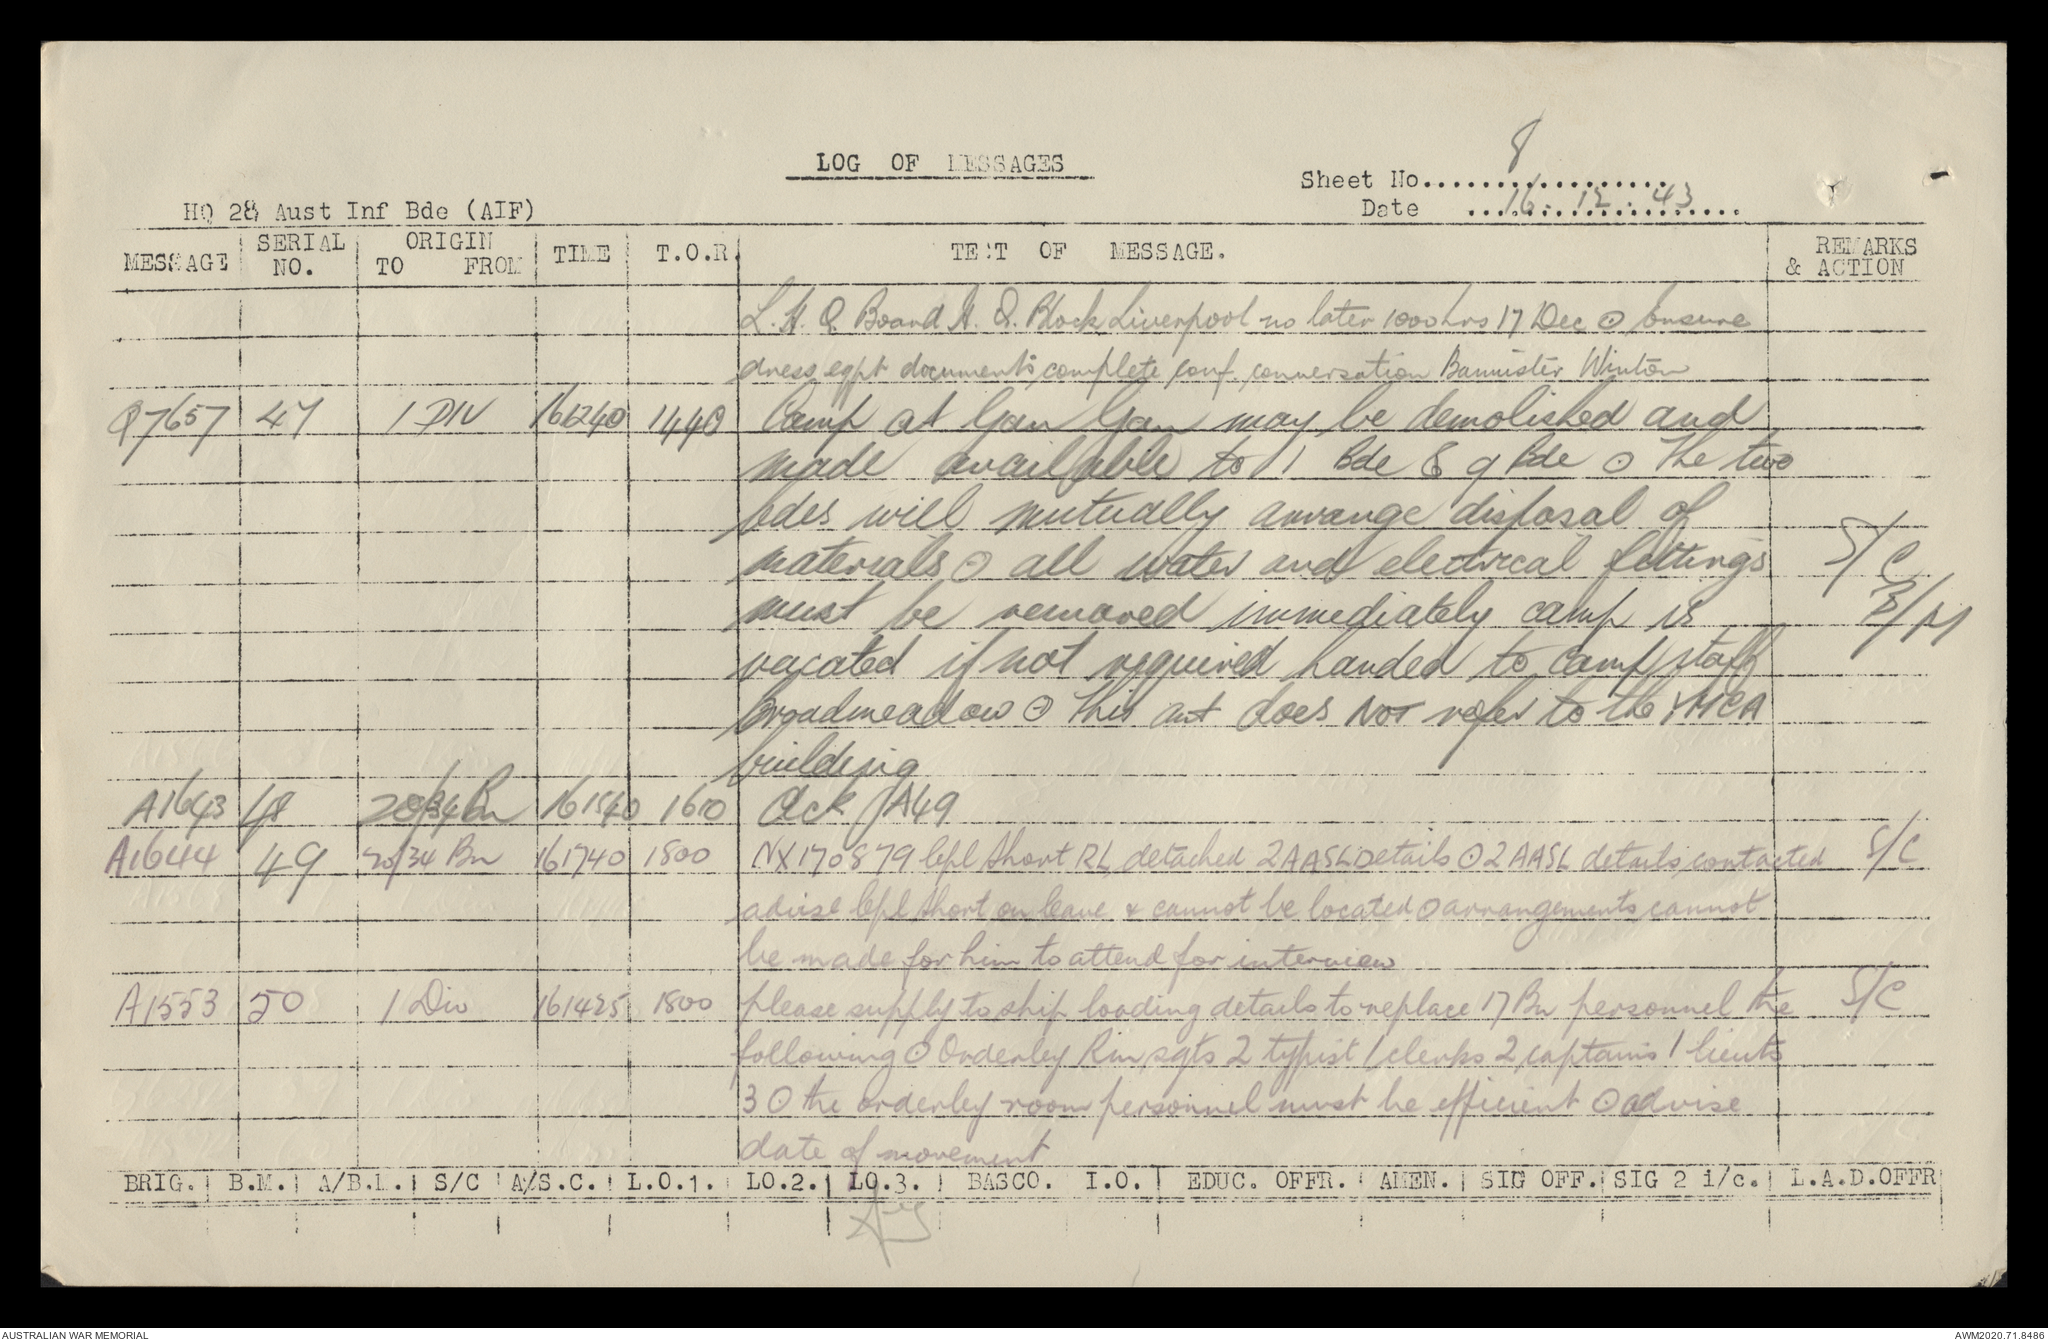 LOG OF MESSAGES
Sheet No.................. 8
Date 16.12.43
HQ 28 Aust Inf Bde (AIF)
MESSAGE SERIAL NO. ORIGIN TO FROM TIME T.O.R. TEXT OF MESSAGE. REMARKS & ACTION
L.H.Q Board H.Q. Block Liverpool no later 1000 hrs 17 Dec ⊙ Ensure
dress, eqpt documents, complete, conf, conversation Bannister Winton
Q7657 47 1 DIV 161240 1440 Camp at Gan Gan may be demolished and
made available to 1 Bde & 9 Bde ⊙ The two
bdes will mutually arrange disposal of
materials ⊙ all water and electrical fittings S/C
must be removed immediately camp is B/M
vacated if not required handed to camp staff
Broadmeadow ⊙ This aut does NOT refer to the YMCA
building
A1643 48 20/34 Bn 161540 1610 Ack A49
A1644 49 20/34 Bn 161740 1800 NX170879 Cpl Short RL, detached 2AASL Details ⊙ 2 AASL details, contacted S/C
advise Cpl Short on leave & cannot be located ⊙ arrangements cannot
be made for him to attend for interview
A1553 50 1 Div 161425 1800 please supply to ship loading details to replace 17 Bn personnel the S/C
following ⊙ Orderley Rm, sgts 2 typist 1 clerks 2, captains 1 lieuts
3 ⊙ the orderley room personnel must be efficient ⊙ advise
date of movement
BRIG. B.M. A/B.M. S/C A/S.C. L.O.1. LO.2. LO.3. BASCO. I.O. EDUC. OFFR. AMEN. SIG OFF. SIG 2 i/c. L.A.D.OFFR
AUSTRALIAN WAR MEMORIAL
AWM2020.71.8486